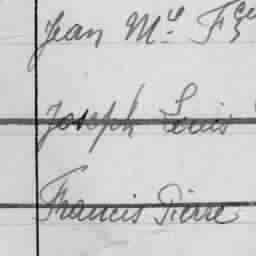 Jean Mel Fçois
Joseph Louis
Francis Pierre